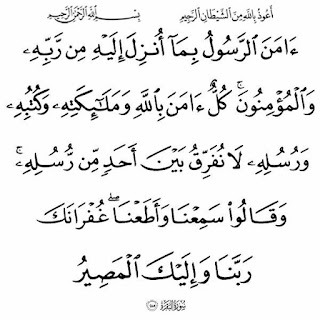 أعوذ بالله من الشيطان الرجيم بسم الله الرحمن الرحيم
ءَامَنَ ٱلرَّسُولُ بِمَآ أُنزِلَ إِلَيْهِ مِن رَّبِّهِۦ
وَٱلْمُؤْمِنُونَ ۚ كُلٌّ ءَامَنَ بِٱللَّهِ وَمَلَـٰٓئِكَتِهِۦ وَكُتُبِهِۦ
وَرُسُلِهِۦ لَا نُفَرِّقُ بَيْنَ أَحَدٍ مِّن رُّسُلِهِۦ ۚ
وَقَالُوا۟ سَمِعْنَا وَأَطَعْنَا ۖ غُفْرَانَكَ
رَبَّنَا وَإِلَيْكَ ٱلْمَصِيرُ
سورة البقرة